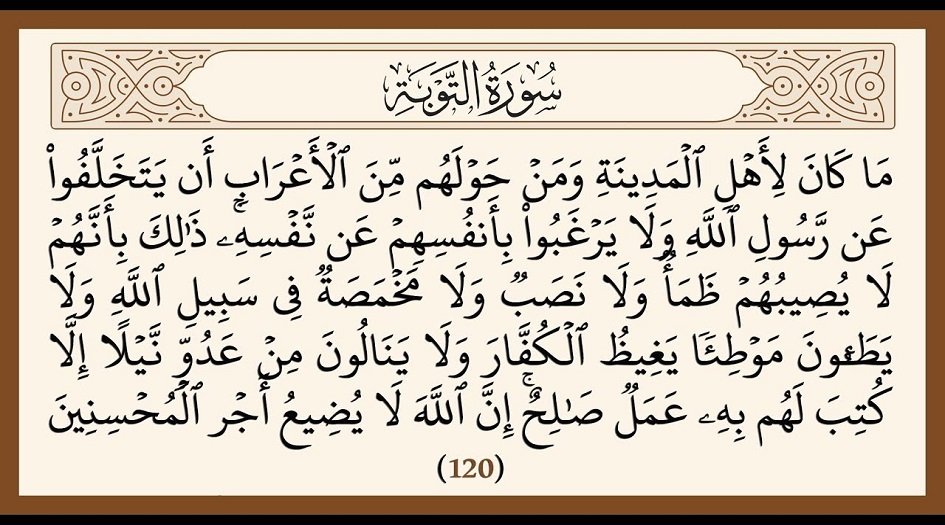 سُورَةُ التَّوْبَةِ
مَا كَانَ لِأَهْلِ ٱلْمَدِينَةِ وَمَنْ حَوْلَهُم مِّنَ ٱلْأَعْرَابِ أَن يَتَخَلَّفُوا۟
عَن رَّسُولِ ٱللَّهِ وَلَا يَرْغَبُوا۟ بِأَنفُسِهِمْ عَن نَّفْسِهِۦ ۚ ذَٰلِكَ بِأَنَّهُمْ
لَا يُصِيبُهُمْ ظَمَأٌ وَلَا نَصَبٌ وَلَا مَخْمَصَةٌ فِى سَبِيلِ ٱللَّهِ وَلَا
يَطَـُٔونَ مَوْطِئًا يَغِيظُ ٱلْكُفَّارَ وَلَا يَنَالُونَ مِنْ عَدُوٍّ نَّيْلًا إِلَّا
كُتِبَ لَهُم بِهِۦ عَمَلٌ صَـٰلِحٌ ۚ إِنَّ ٱللَّهَ لَا يُضِيعُ أَجْرَ ٱلْمُحْسِنِينَ
(120)